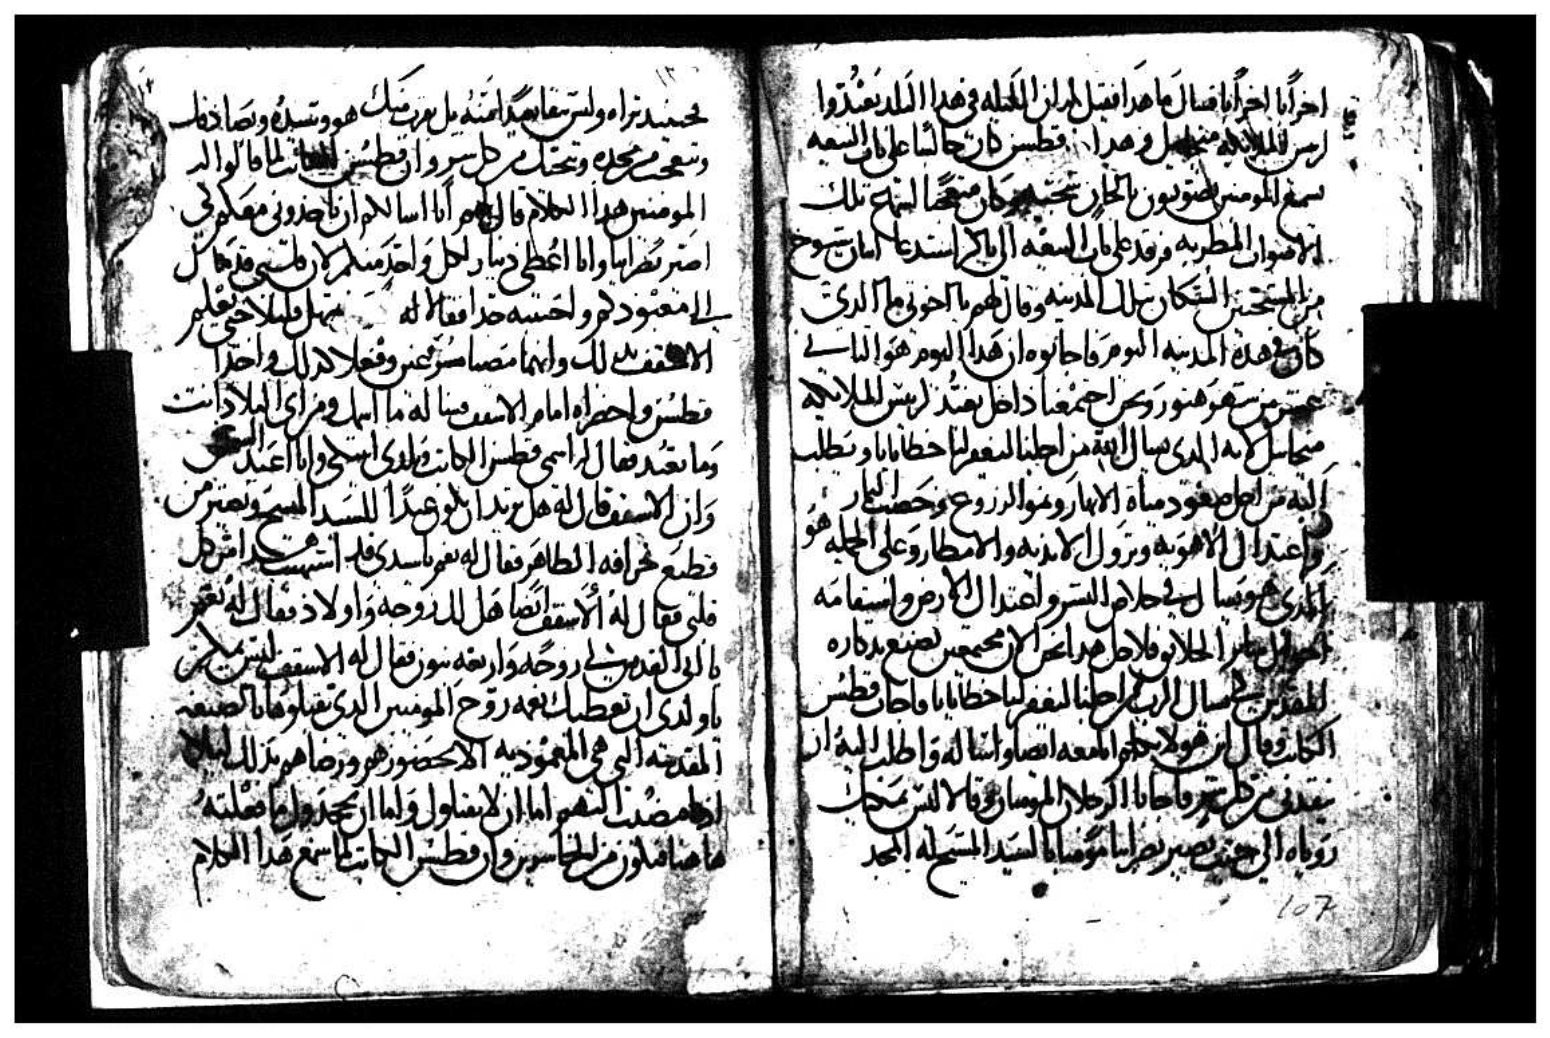 اخرابا اخرابا فسال ما هدا فقيل له ان الليله في هدا البلد يعيدوا
لريس الملايكه ميخاييل وهدا قطسن كان جالسا على باب البيعه
يسمع المومنين يصوتون بالحان متعجبا لسماع تلك
الاصوات المطربه فرقد على باب البيعه الى باكر استدعا شيوخ
من المسيحيين السكان بتلك المدينه وقال لهم يا اخوتي ما الدي
كان في هده المدينه اليوم فاجابوه ان هدا اليوم هو الثاني
عشر من شهر هتور ونحن اجتمعنا داخل بعيد لريس الملايكه
ميخاييل لانه الدي يسال الله من اجلنا ليغفر لنا خطايانا ويطلب
اليه من اجل صعود مياه الانهار ونمو الزروع وخصب الثمار
واعتدال الاهويه ونزول الانديه والامطار وعلى الجمله هو
الدي هو يسال في خلاص البشر واعتدال الارض واستقامه
احوال ساير الخلايق فلاجل هدا نحن الان مجتمعين نصنع تدكاره
المقدس لكي يسال الرب من اجلنا ليغفر لنا خطايانا فاجاب قطسن
الكاتب وقال اين هو لاتكلم معه ايضا واساله واطلب اليه ان
ينقدني من كل شر فاجابا الرجلان المومنان وقالا ليس يمكنك
روياه الى حين تصير نصرانيا مومنا بالسيد المسيح له المجد
107
فحينيد تراه وليس يبقا بعيدا منه بل يعرفك هو وتسيده
وتتعجب من مجده وينجيك من كل شر وان قطسن الكاتب لما قالوا له
المومنين هدا الكلام قال لهم انا اسالكم ان تاخدوني معكم لكي
اصير نصرانيا وانا اعطي دينار لكل واحد منكم لان قلبي قد مال
الى معبودكم واحببته جدا فقالا له تمهل قليلا حتى نعلم
الاسقف بدلك وانهما مضيا مسرعين وفعلا كدلك واخدا
قطسن واحضراه امام الاسقف فساله ما اسمك ومن اي البلاد انت
وما تعبد فقال له اسمي قطسن الكاتب وانا اعبد الشمس
وان الاسقف قال له هل تريد ان تكون عبدا للسيد المسيح وتصير من
قطيع خرافه الطاهر فقال له نعم يا سيدي قد اشتهيت هدا من كل
قلبي فقال له الاسقف ايضا هل لك زوجه واولاد فقال له نعم
يا ابي القديس لي زوجه واربعه بنين فقال له الاسقف ليس يمكن
يا ولدي ان نعطيك نعمه روح المومنين الدي تقبلوها بالصبغه
المقدسه التي هي المعموديه الا بحضورهم ورضاهم بدلك ليلا
ادا مضيت اليهم اما ان لا يقبلوك واما ان تجحد كل ما فعلته
هاهنا فتكون من الخاسرين وان قطسن الكاتب لما سمع هدا الكلام